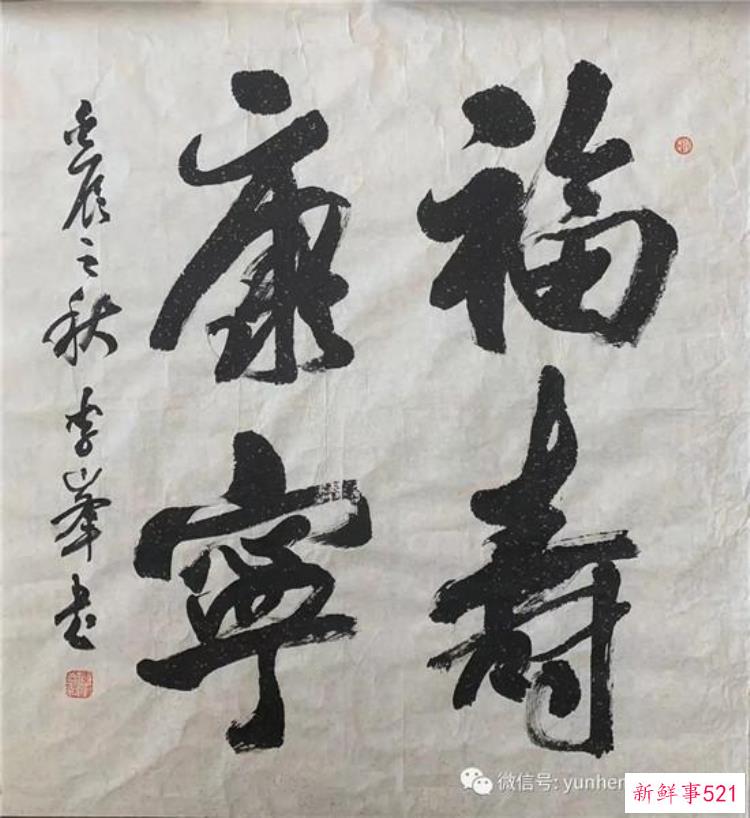 福寿
康寧
壬辰之秋 李峯书
微信号: yunhen
新鲜事521